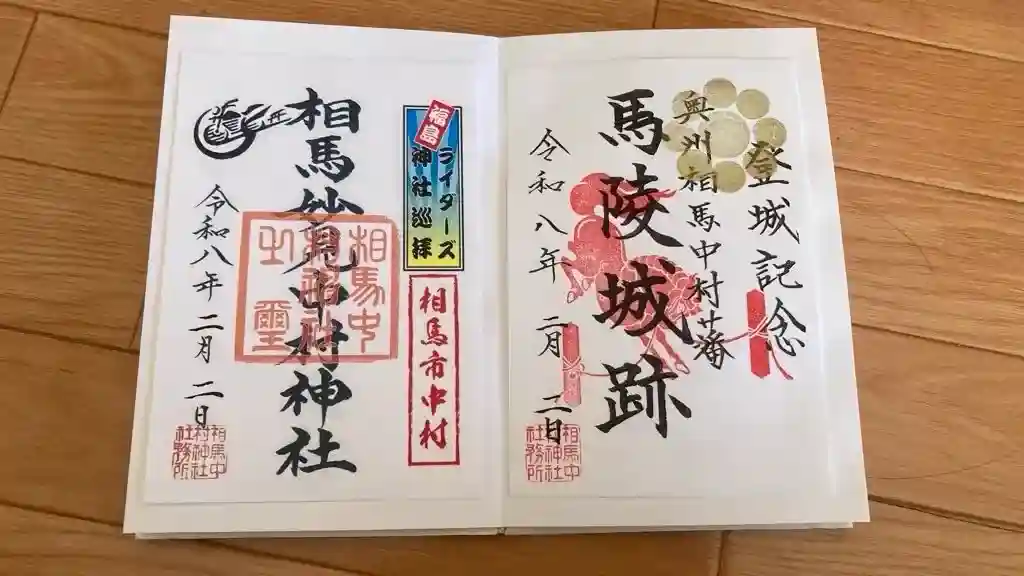 登城記念
奥州相馬中村藩
馬陵城跡
令和八年二月二日
相馬中
村神社
社務所
福島
ライダーズ
神社巡拝
相馬市中村
相馬妙見中村神社
相馬中
村神社
之璽
令和八年二月二日
相馬中
村神社
社務所